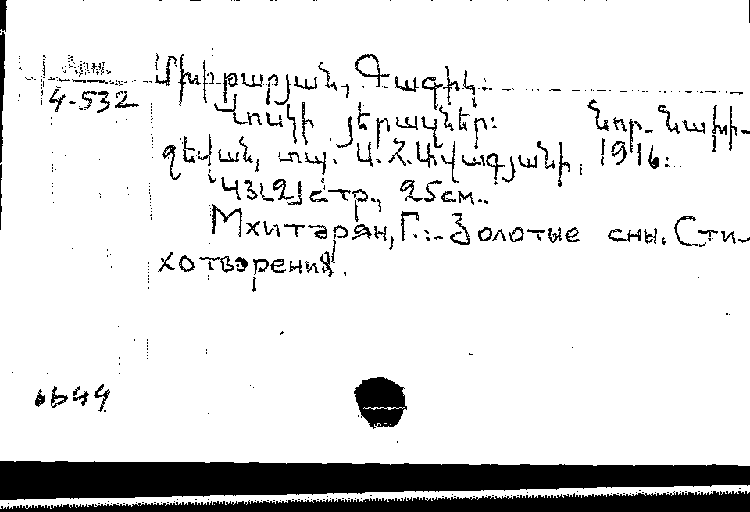 Арм.
4-532
Մխիթարյան, Գագիկ։
Ոսկի յերազներ։ Նոր-Նախի-
չեվան, տպ. Ս. Հ. Ավագյանի, 1916։
43[2]стр., 25см..
Мхитарян, Г.:-Золотые сны. Сти-
хотворения.
6644